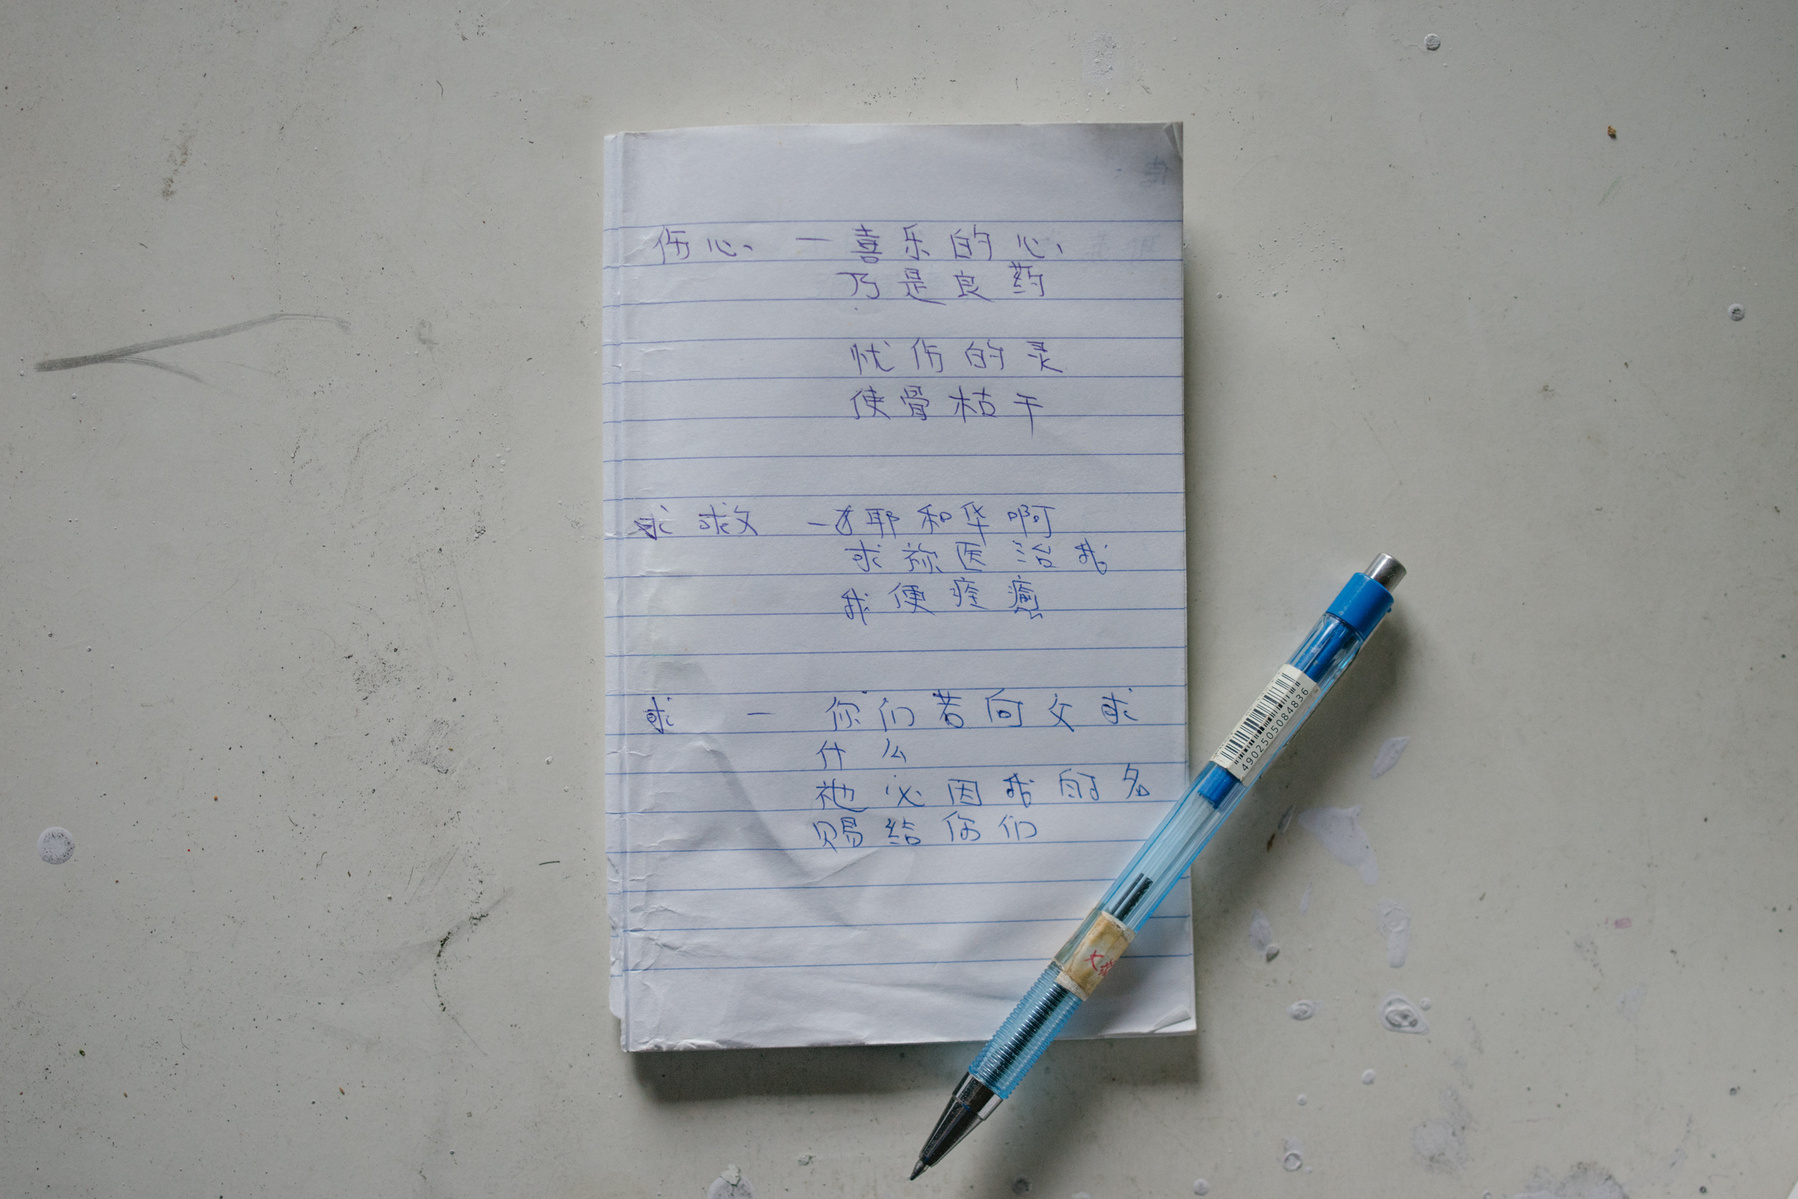 伤心 — 喜乐的心
乃是良药
忧伤的灵
使骨枯干
求救 — 耶和华啊
求祢医治我
我便痊癒
求 — 你们若向父求
什么
祂必因我的名
赐给你们
4902505084836